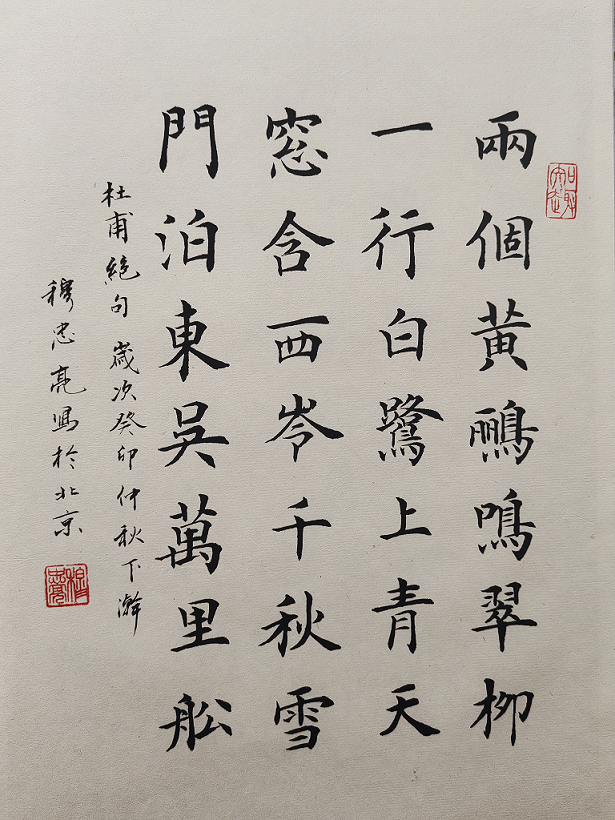 兩個黃鸝鳴翠柳
一行白鷺上青天
窓含西岺千秋雪
門泊東吳萬里舩
杜甫絕句 歲次癸卯仲秋下澣
穆忠亮寫於北京